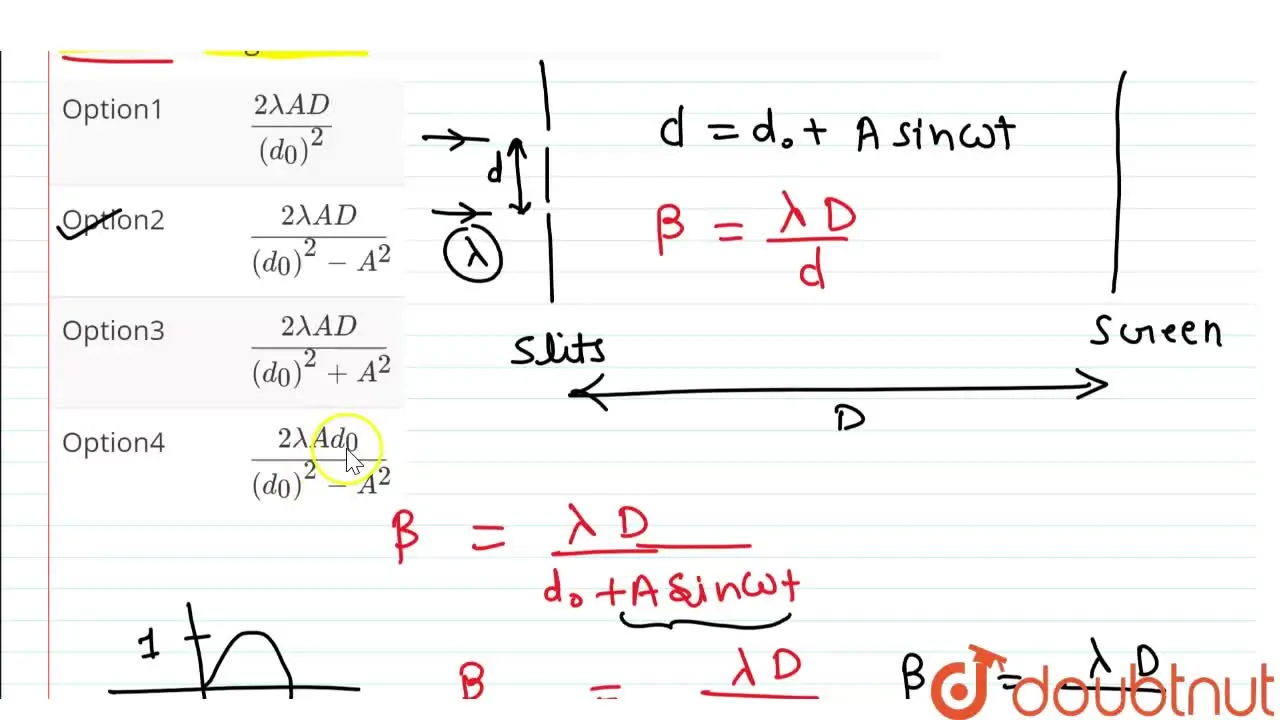 Option1 2λAD / (d0)^2
Option2 2λAD / (d0)^2 − A^2
Option3 2λAD / (d0)^2 + A^2
Option4 2λAd0 / (d0)^2 − A^2
d
λ
d = d₀ + A sinωt
β = λD / d
Slits
Screen
D
β = λD / d₀ + A sinωt
1
β = λD
β = λD
doubtnut